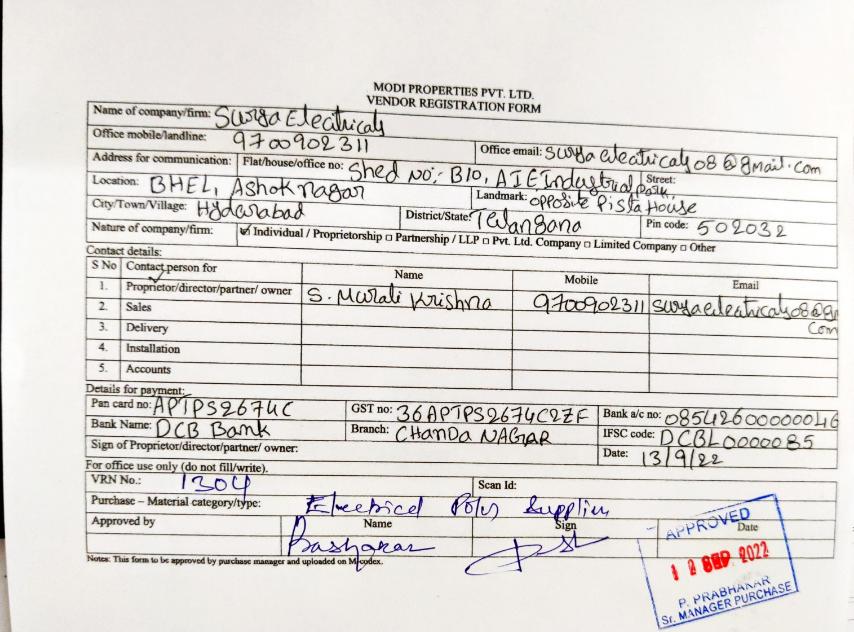 MODI PROPERTIES PVT. LTD.
VENDOR REGISTRATION FORM
Name of company/firm: Surya Electricals
Office mobile/landline: 9700902311 Office email: suryaelectricals08@gmail.com
Address for communication: Flat/house/office no: Shed No:- B10, AIE Industrial park, Street:
Location: BHEL, Ashok nagar Landmark: opposite Pista House
City/Town/Village: Hyderabad District/State: Telangana Pin code: 502032
Nature of company/firm: ☑ Individual / Proprietorship □ Partnership / LLP □ Pvt. Ltd. Company □ Limited Company □ Other
Contact details:
S No Contact person for Name Mobile Email
1. Proprietor/director/partner/ owner S. Murali Krishna 9700902311 suryaelectricals08@g
com
2. Sales
3. Delivery
4. Installation
5. Accounts
Details for payment:
Pan card no: APTPS2674C GST no: 36APTPS2674C2ZF Bank a/c no: 08542600000046
Bank Name: DCB Bank Branch: CHANDA NAGAR IFSC code: DCBL0000085
Sign of Proprietor/director/partner/ owner: Date: 13/9/22
For office use only (do not fill/write).
VRN No.: 1304 Scan Id:
Purchase – Material category/type: Electrical Poles Supplies
Approved by Name Sign Date
Bashakar
Notes: This form to be approved by purchase manager and uploaded on M-codex.
APPROVED
12 SEP 2022
P. PRABHAKAR
Sr. MANAGER PURCHASE